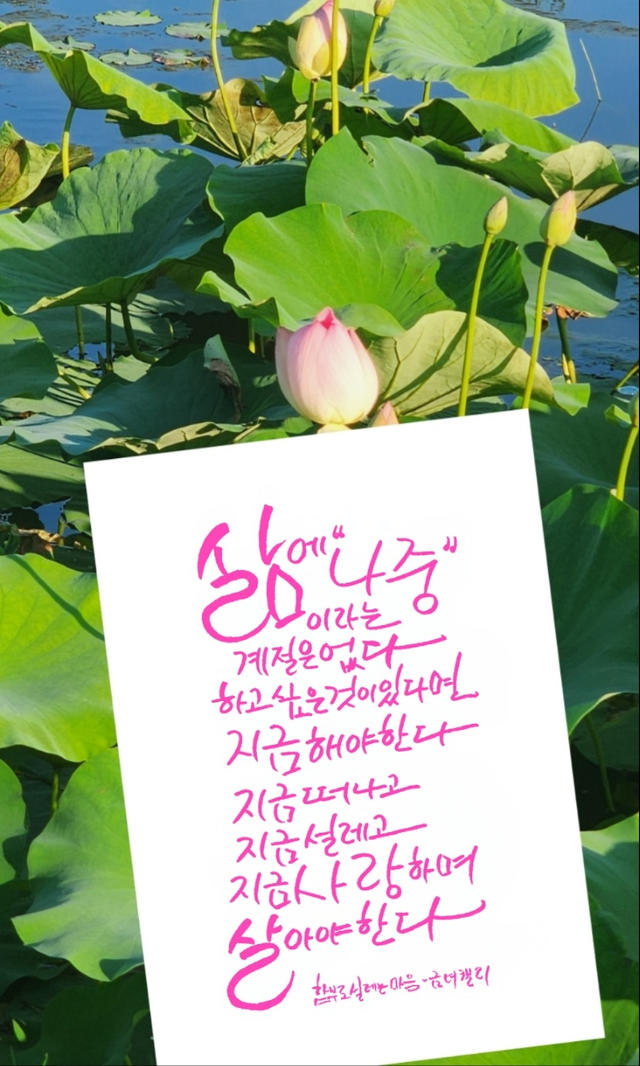 삶에 "나중"
이라는
계절은 없다
하고 싶은 것이 있다면
지금 해야 한다
지금 떠나고
지금 설레고
지금 사랑하며
살아야 한다
함부로 설레는 마음 - 금녀캘리